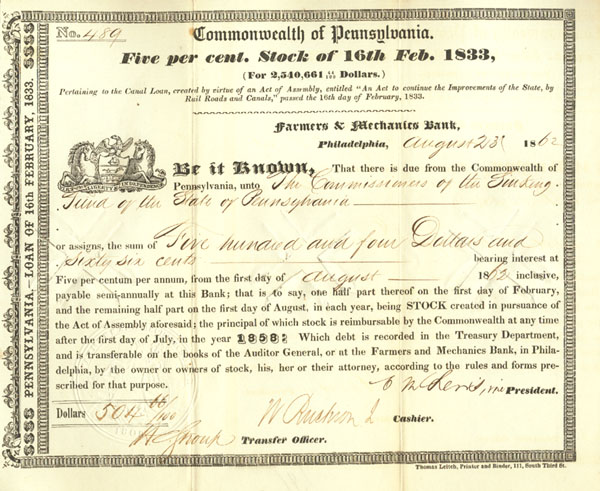 No. 489
Commonwealth of Pennsylvania.
Five per cent. Stock of 16th Feb. 1833,
(For 2,540,661 44/100 Dollars.)
Pertaining to the Canal Loan, created by virtue of an Act of Assembly, entitled "An Act to continue the Improvements of the State, by
Rail Roads and Canals," passed the 16th day of February, 1833.
Farmers & Mechanics Bank,
Philadelphia, August 23 1862
Be it Known, That there is due from the Commonwealth of
Pennsylvania, unto The Commissioners of the Sinking
Fund of the State of Pennsylvania
or assigns, the sum of Five hundred and four Dollars and
Sixty six cents bearing interest at
Five per centum per annum, from the first day of August 1862 inclusive,
payable semi-annually at this Bank; that is to say, one half part thereof on the first day of February,
and the remaining half part on the first day of August, in each year, being STOCK created in pursuance of
the Act of Assembly aforesaid; the principal of which stock is reimbursable by the Commonwealth at any time
after the first day of July, in the year 1858: Which debt is recorded in the Treasury Department,
and is transferable on the books of the Auditor General, or at the Farmers and Mechanics Bank, in Phila-
delphia, by the owner or owners of stock, his, her or their attorney, according to the rules and forms pre-
scribed for that purpose.
President.
Dollars 504 66/100
Cashier.
Transfer Officer.
Thomas Leitch, Printer and Binder, 111, South Third St.
PENNSYLVANIA.—LOAN OF 16th FEBRUARY, 1833.